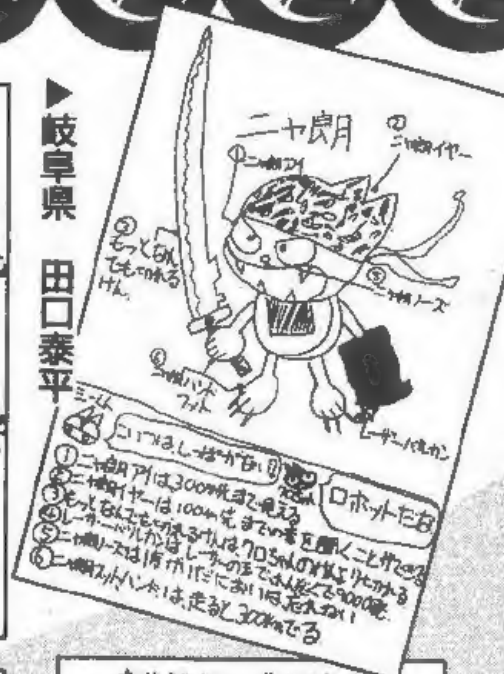 ▶岐阜県 田口泰平
ニャ良月
①ニャ良月アイ
②ニャ良月イヤー
③もっとなん
でもきれる
けん
⑤ニャ良月ノーズ
⑥ニャ良月ハンド
フット
レーザーバルカン
ミーくん
こいつは、しっぽがない!
ロボットだな
①ニャ良月アイは、300m先まで見える
②ニャ良月イヤーは100m先までの音を聞くことができる
③もっとなんでもきれるけんは、クロちゃんのけんよりもきれる
④レーザーバルカンは、レーザーの玉で
⑤ニャ良月ノーズは1度かいだにおいは、忘れない
⑥ニャ良月フットハンドは、走ると300kmでる